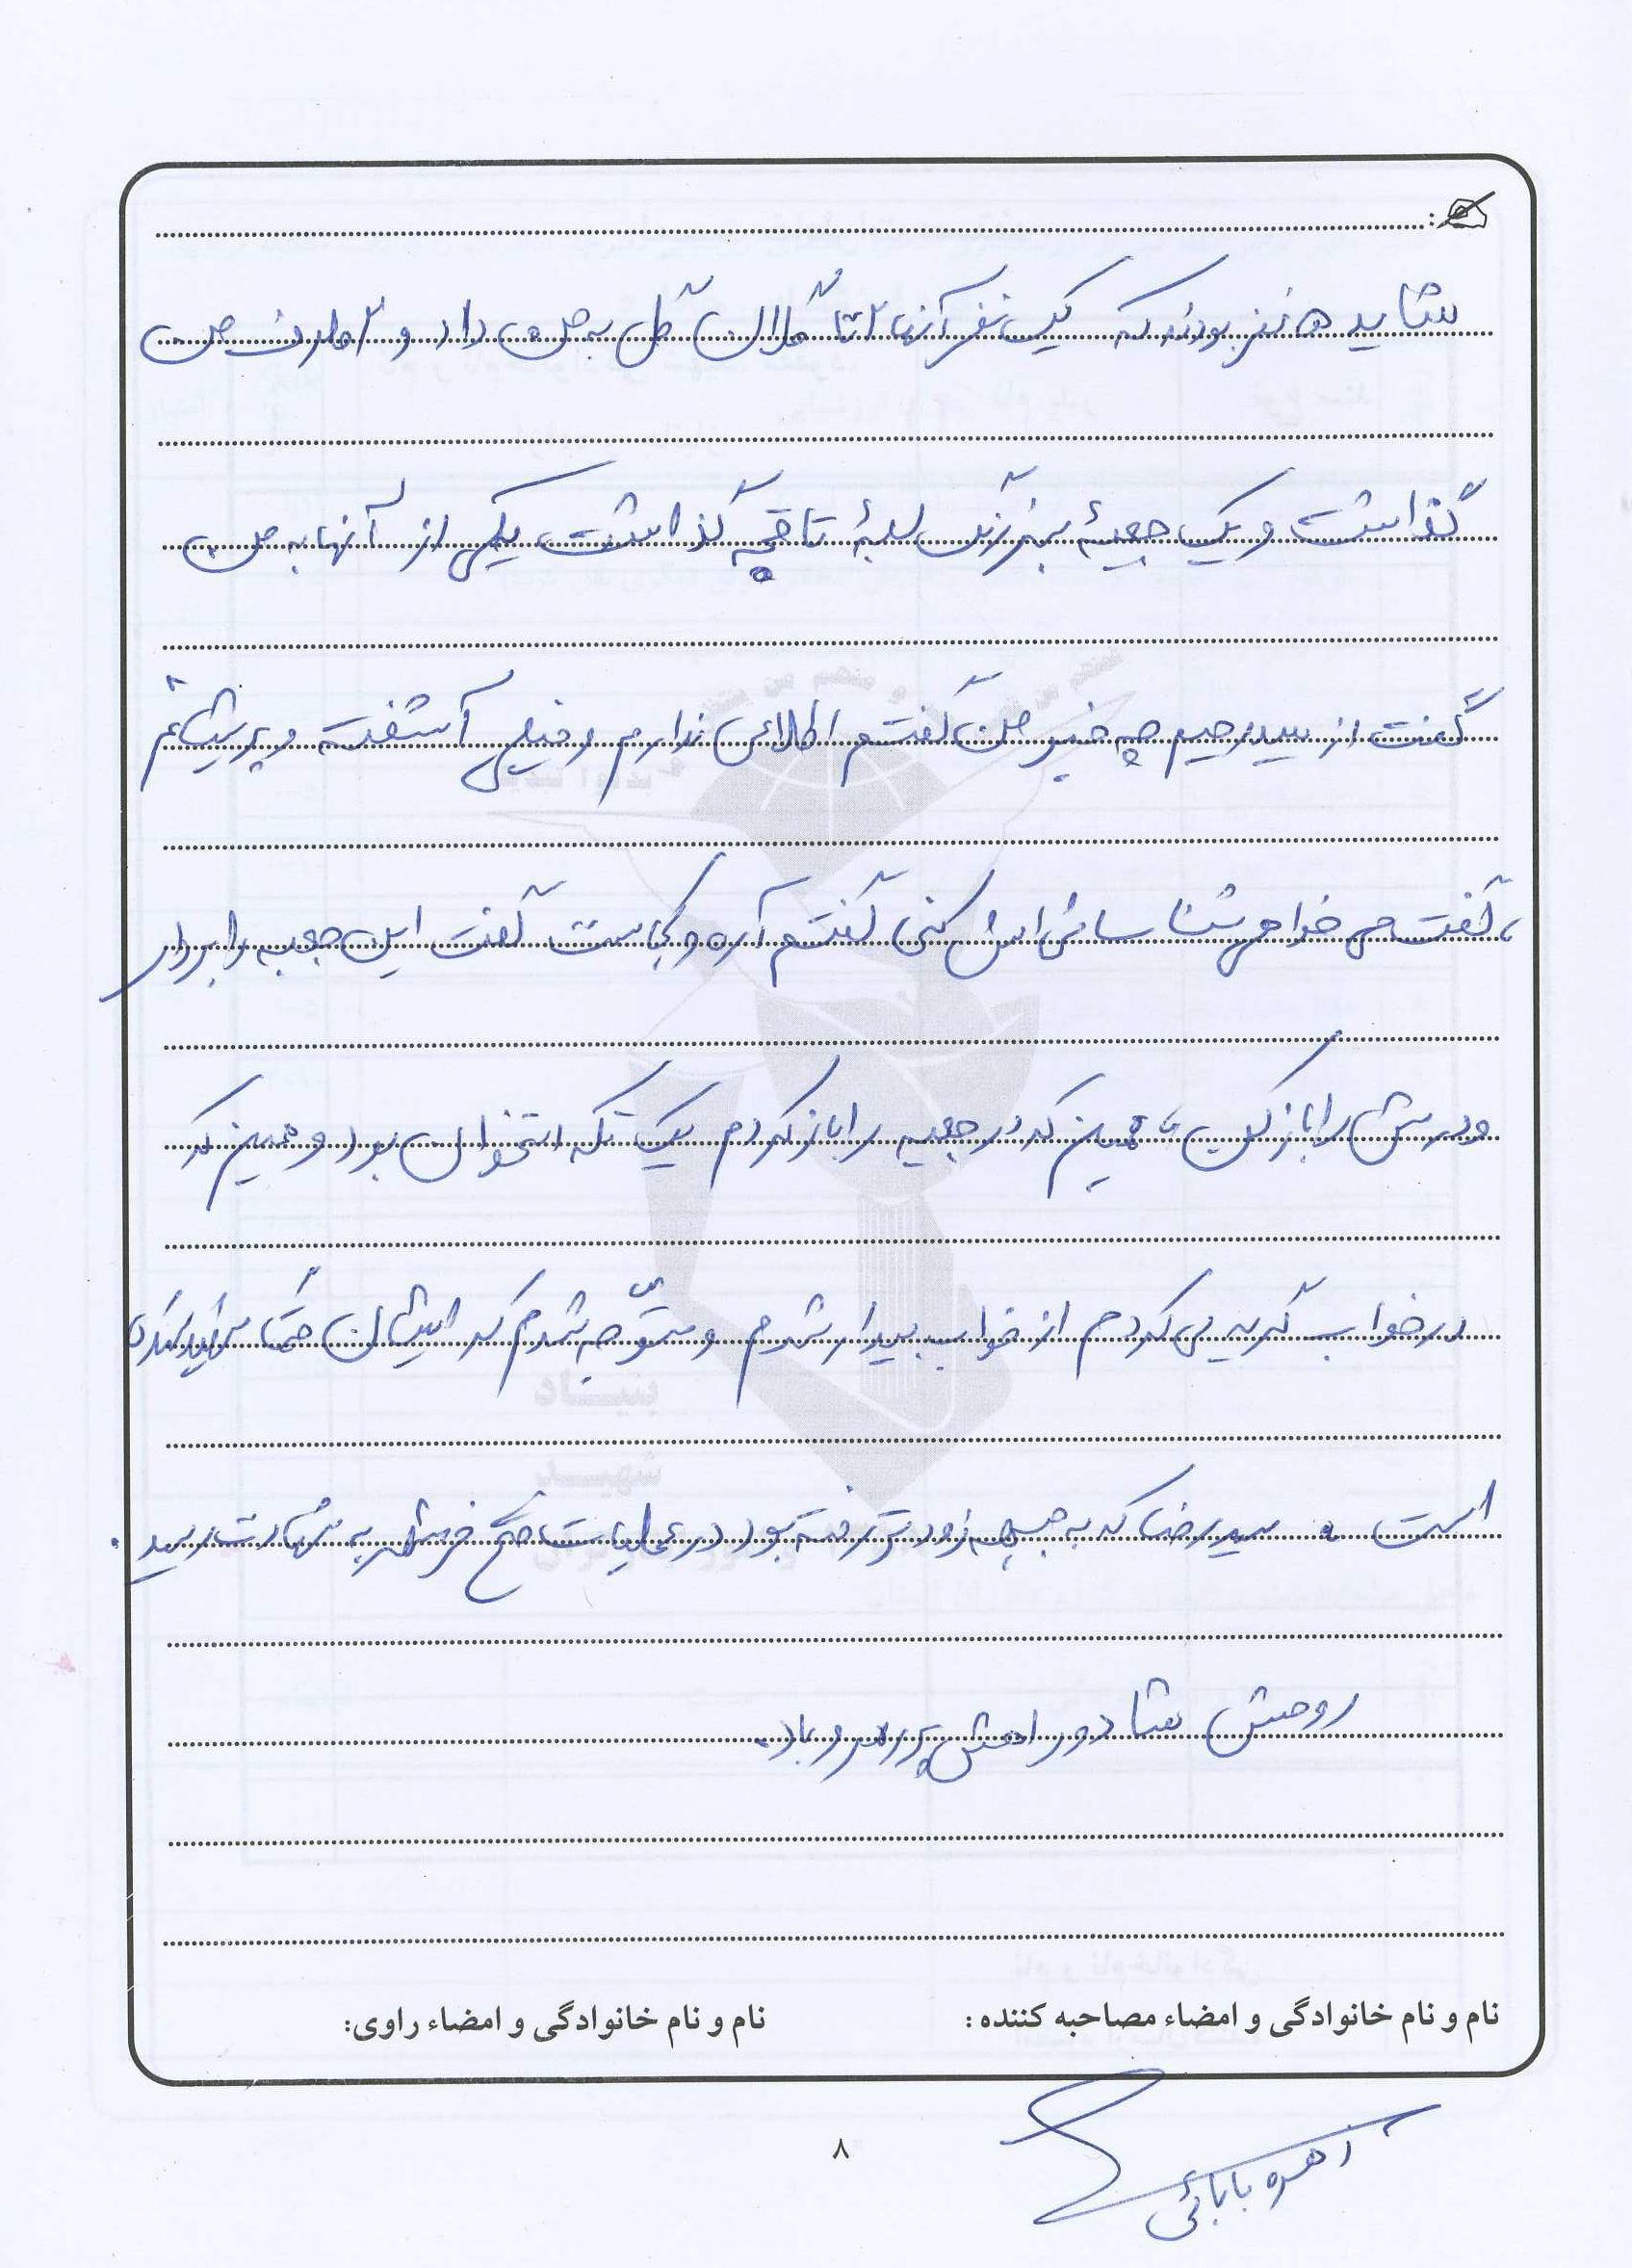 شاید ۵ نفر بودند که یک نفر آنها ۲ تا گلدان گل به من داد و ۲ طرف من
گذاشت و یک جعبهٔ بزرگ لبهٔ تاقچه گذاشت یکی از آنها به من
گفت از سید رحیم چه خبر من گفتم اطلاعی ندارم و خیلی آشفته و پریشانم
، گفت می خواهی شناسائی اش کنی گفتم آره و کجاست گفت این جعبه را بردار
و درش را باز کن ، همین که در جعبه را باز کردم یک تکه استخوان بود و همین که
در خواب گریه می کردم از خواب بیدار شدم و متوّجه شدم که ایشان حتماً شهید شده
است . سید رضا که به جبهه زودتر رفته بود در عملیات فتح خرمشهر به شهادت رسید .
روحش شاد و راهش پر رهرو باد .
نام و نام خانوادگی و امضاء مصاحبه کننده : نام و نام خانوادگی و امضاء راوی:
۸
بابائی